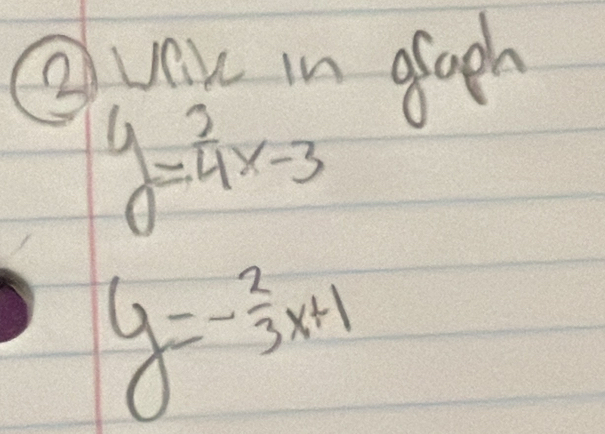 ③ Write in graph
y=3/4x-3
y=-2/3x+1